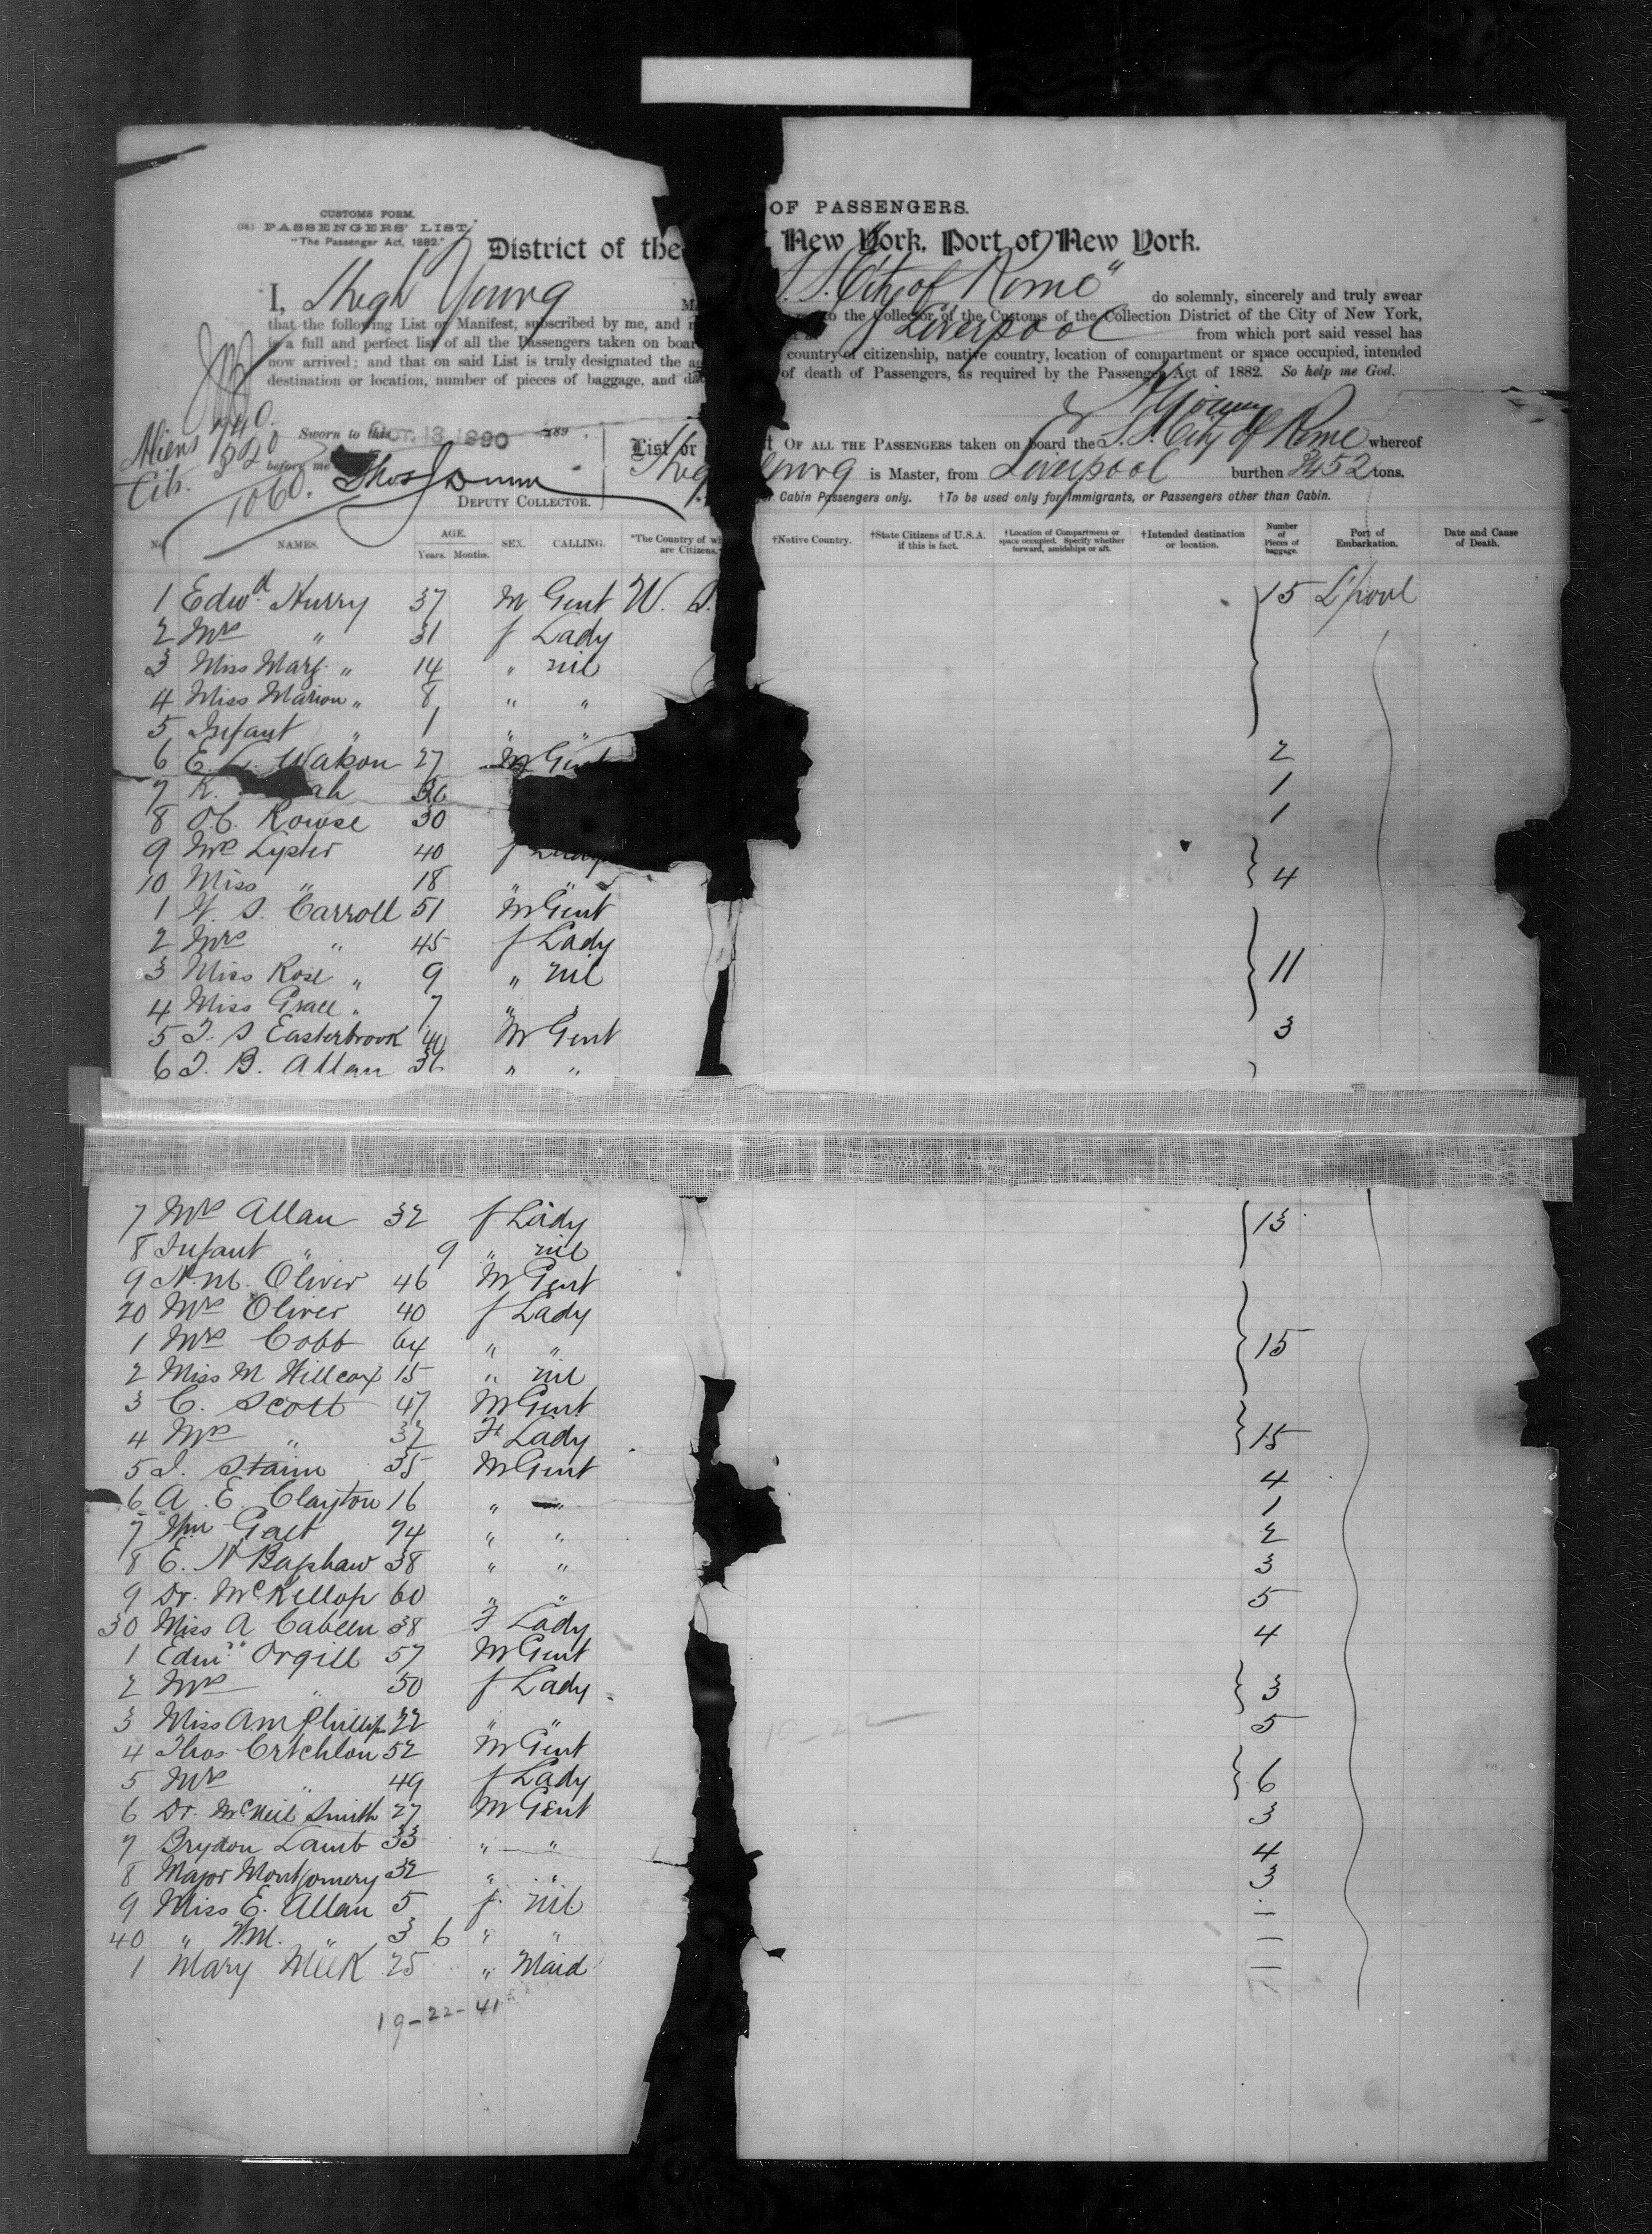 OF PASSENGERS.
CUSTOMS FORM.
PASSENGERS' LIST.
"The Passenger Act, 1882."
District of the New York, Port of New York.
I, Hugh Young S.S. "City of Rome" do solemnly, sincerely and truly swear
that the following List or Manifest, subscribed by me, and to the Collector of the Customs of the Collection District of the City of New York,
is a full and perfect list of all the Passengers taken on board Liverpool from which port said vessel has
now arrived; and that on said List is truly designated the country of citizenship, native country, location of compartment or space occupied, intended
destination or location, number of pieces of baggage, and of death of Passengers, as required by the Passenger Act of 1882. So help me God.
H Young
Aliens 740.
Cits. 320
1060.
Sworn to this OCT. 13 1890 189
before me Thos J Dunn
DEPUTY COLLECTOR.
List or OF ALL THE PASSENGERS taken on board the S.S. City of Rome whereof
Hugh Young is Master, from Liverpool burthen 3452 tons.
Cabin Passengers only. †To be used only for Immigrants, or Passengers other than Cabin.
No. NAMES. AGE. Years. Months. SEX. CALLING. *The Country of wh are Citizens. †Native Country. †State Citizens of U.S.A. if this is fact. †Location of Compartment or space occupied. Specify whether forward, amidships or aft. †Intended destination or location. Number of Pieces of baggage. Port of Embarkation. Date and Cause of Death.
1 Edwd. Hurry 37 M Gent U. S. 15 L'pool
2 Mrs " 31 f Lady
3 Miss Marg. " 14 " nil
4 Miss Marion " 8 " "
5 Infant " 1 " "
6 E. L. Wakon 27 M Gent 2
7 K. ah 1
8 O.C. Rowse 30 1
9 Mrs Lyster 40 f Lady
10 Miss " 18 " " 4
1 W. S. Carroll 51 M Gent
2 Mrs " 45 f Lady
3 Miss Rose " 9 " nil 11
4 Miss Grace " 7 " "
5 T. S Easterbrook 40 M Gent 3
6 T. B. Allan 36 " "
7 Mrs Allan 32 f Lady 13
8 Infant " 9 " nil
9 N. M. Oliver 46 M Gent
20 Mrs Oliver 40 f Lady
1 Mrs Cobb 64 " " 15
2 Miss M Willcox 15 " nil
3 C. Scott 47 M Gent
4 Mrs " 37 F Lady 15
5 J. Stainn 35 M Gent 4
6 A. E. Clayton 16 " " 1
7 Wm Galt 74 " " 2
8 E. N Bagshaw 38 " " 3
9 Dr. McKellop 60 " " 5
30 Miss A Cabeen 38 F Lady 4
1 Edm. Orgill 57 M Gent
2 Mrs " 50 f Lady 3
3 Miss A M Phillips 22 " " 5
4 Thos Critchlon 52 M Gent
5 Mrs " 49 f Lady 6
6 Dr. McNeil Smith 27 M Gent 3
7 Brydon Lamb 33 " " 4
8 Major Montgomery 32 " " 3
9 Miss E. Allan 5 f. nil.
40 " W.M. " 3 6 " "
1 Mary Meek 25 " Maid
19-22-41
19-22